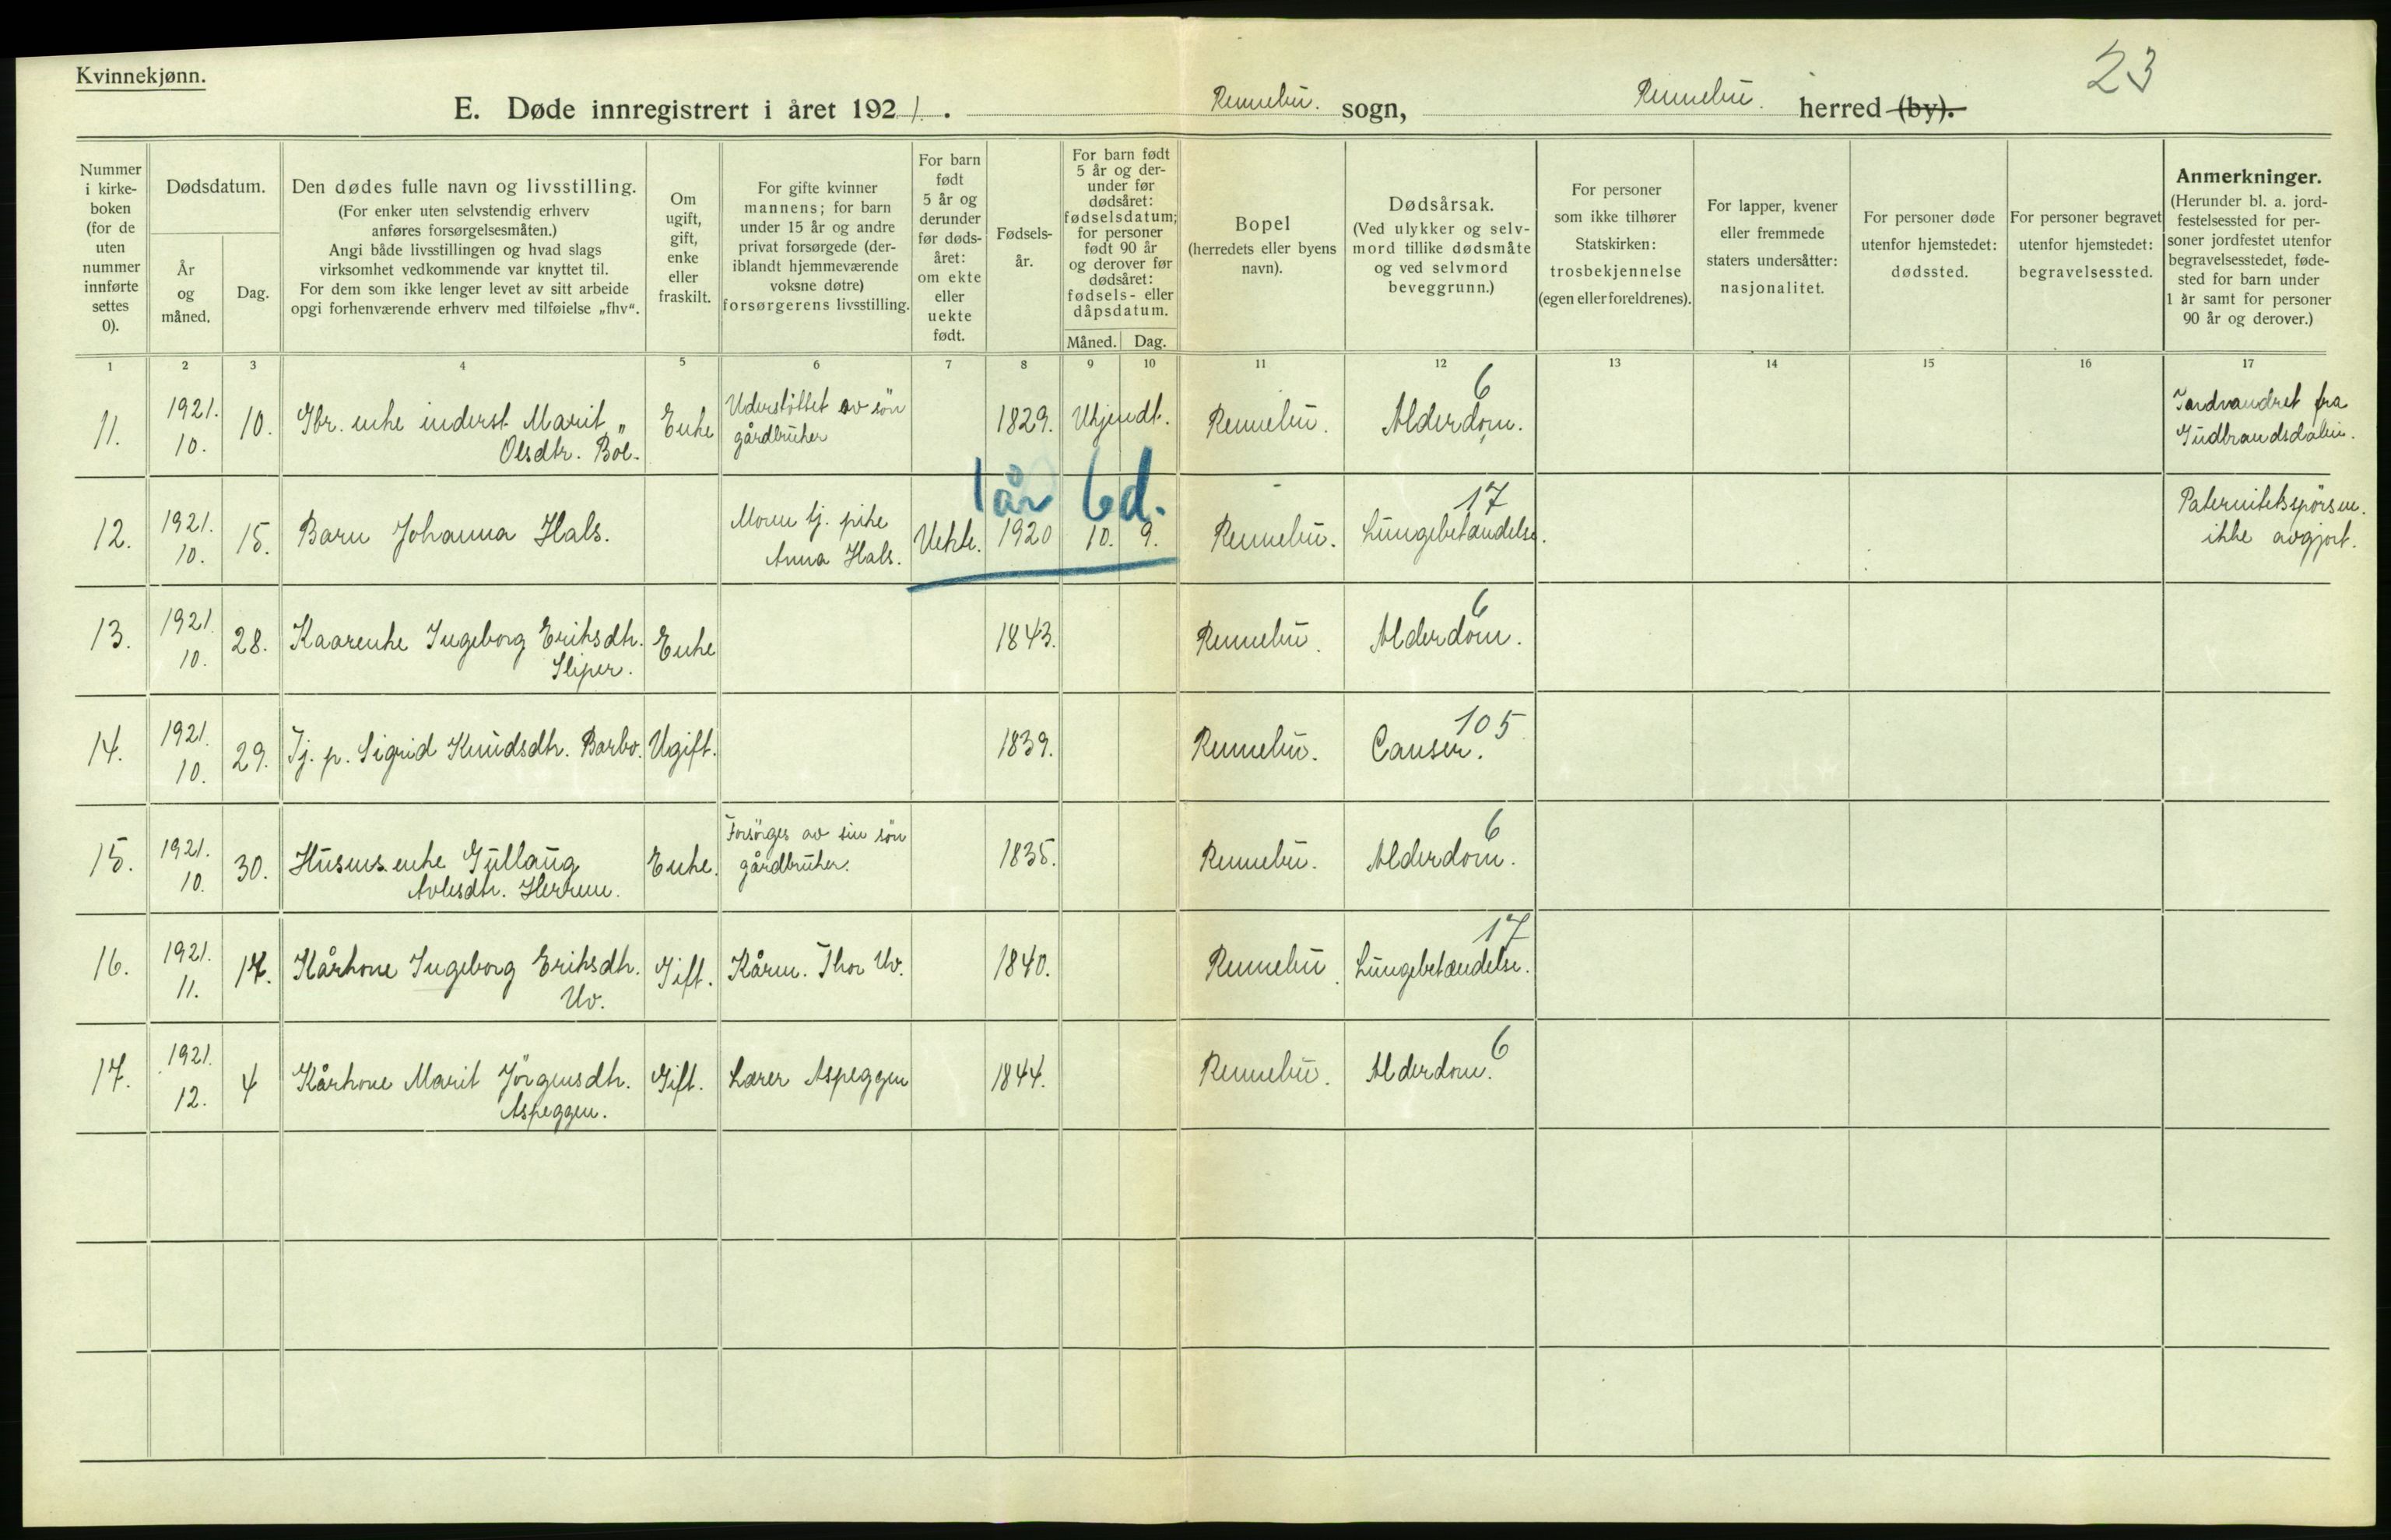 Kvinnekjønn.
23
E. Døde innregistrert i året 1921. Rennebu. sogn, Rennebu. herred (by).
Nummer i kirke-boken (for de uten nummer innførte settes 0).
Dødsdatum.
År og måned.
Dag.
Den dødes fulle navn og livsstilling.
(For enker uten selvstendig erhverv
anføres forsørgelsesmåten.)
Angi både livsstillingen og hvad slags
virksomhet vedkommende var knyttet til.
For dem som ikke lenger levet av sitt arbeide
opgi forhenværende erhverv med tilføielse „fhv“.
Om ugift, gift, enke eller fraskilt.
For gifte kvinner
mannens; for barn
under 15 år og andre
privat forsørgede (der-
iblandt hjemmeværende
voksne døtre)
forsørgerens livsstilling.
For barn født 5 år og derunder før døds-året: om ekte eller uekte født.
Fødsels-år.
For barn født
5 år og der-
under før
dødsåret:
fødselsdatum;
for personer
født 90 år
og derover før
dødsåret:
fødsels- eller
dåpsdatum.
Måned. Dag.
Bopel
(herredets eller byens
navn).
Dødsårsak.
(Ved ulykker og selv-
mord tillike dødsmåte
og ved selvmord
beveggrunn.)
For personer
som ikke tilhører
Statskirken:
trosbekjennelse
(egen eller foreldrenes).
For lapper, kvener
eller fremmede
staters undersåtter:
nasjonalitet.
For personer døde
utenfor hjemstedet:
dødssted.
For personer begravet
utenfor hjemstedet:
begravelsessted.
Anmerkninger.
(Herunder bl. a. jord-
festelsessted for per-
soner jordfestet utenfor
begravelsesstedet, føde-
sted for barn under
1 år samt for personer
90 år og derover.)
1 2 3 4 5 6 7 8 9 10 11 12 13 14 15 16 17
11. 1921. 10. 10. Gbr. enke inderst Marit Olsdtr. Boe. Enke Understöttet av sön gårdbruker 1829. Ukjendt. Rennebu. Alderdom. 6 Indvandret fra Gudbrandsdalen.
1 år 6 d.
12. 1921. 10. 15. Barn Johanna Hals. Moren tj. pike Anna Hals. Uekte. 1920 10. 9. Rennebu. Lungebetændelse. 17 Paternitetsspörsm. ikke avgjort.
13. 1921. 10. 28. Kaarenke Ingeborg Eriksdtr. Sliper. Enke 1843. Rennebu. Alderdom. 6
14. 1921. 10. 29. Tj. p. Sigrid Knudsdtr. Barbo. Ugift. 1839. Rennebu. Canser. 105
15. 1921. 10. 30. Husms.enke Gullaug Avlesdtr. Herrem. Enke. Forsörges av sin sön gårdbruker. 1835. Rennebu. Alderdom. 6
16. 1921. 11. 17. Kårkone Ingeborg Eriksdtr. Uv. Gift. Kårm. Thor Uv. 1840. Rennebu. Lungebetændelse. 17
17. 1921. 12. 4 Kårkone Marit Jörgensdtr. Aspeggen. Gift. Lærer Aspeggen 1844. Rennebu. Alderdom. 6